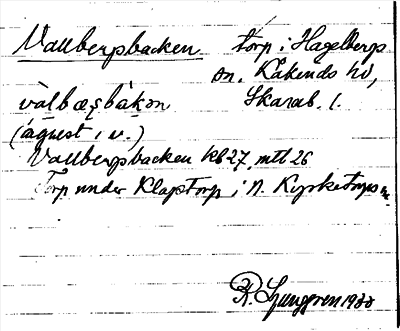 Vallbergsbacken torp i Hagelbergs
sn. Kåkends hd,
Skarab. l.
vàlbæṣbàkən
(ägnest i v.)
Vallbergsbacken kb 27, mtl 26
Torp under Klapstorp i N. Kyrketorps sn.
R. Ljunggren 1930